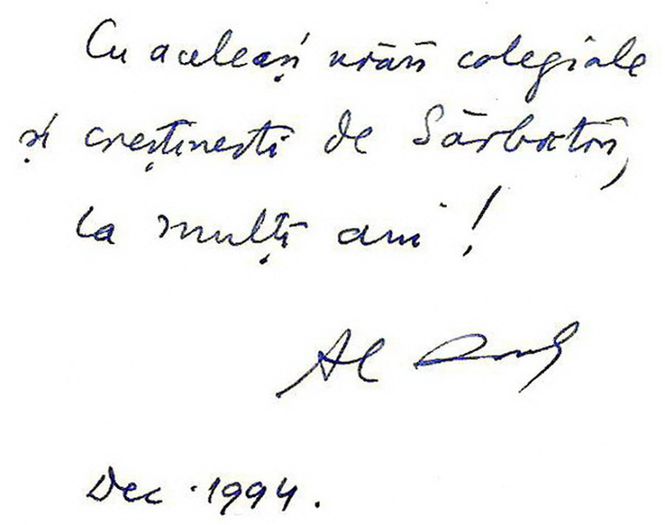 Cu aceleași urări colegiale
și creștinești de Sărbători,
La mulți ani!
Al
Dec. 1994.